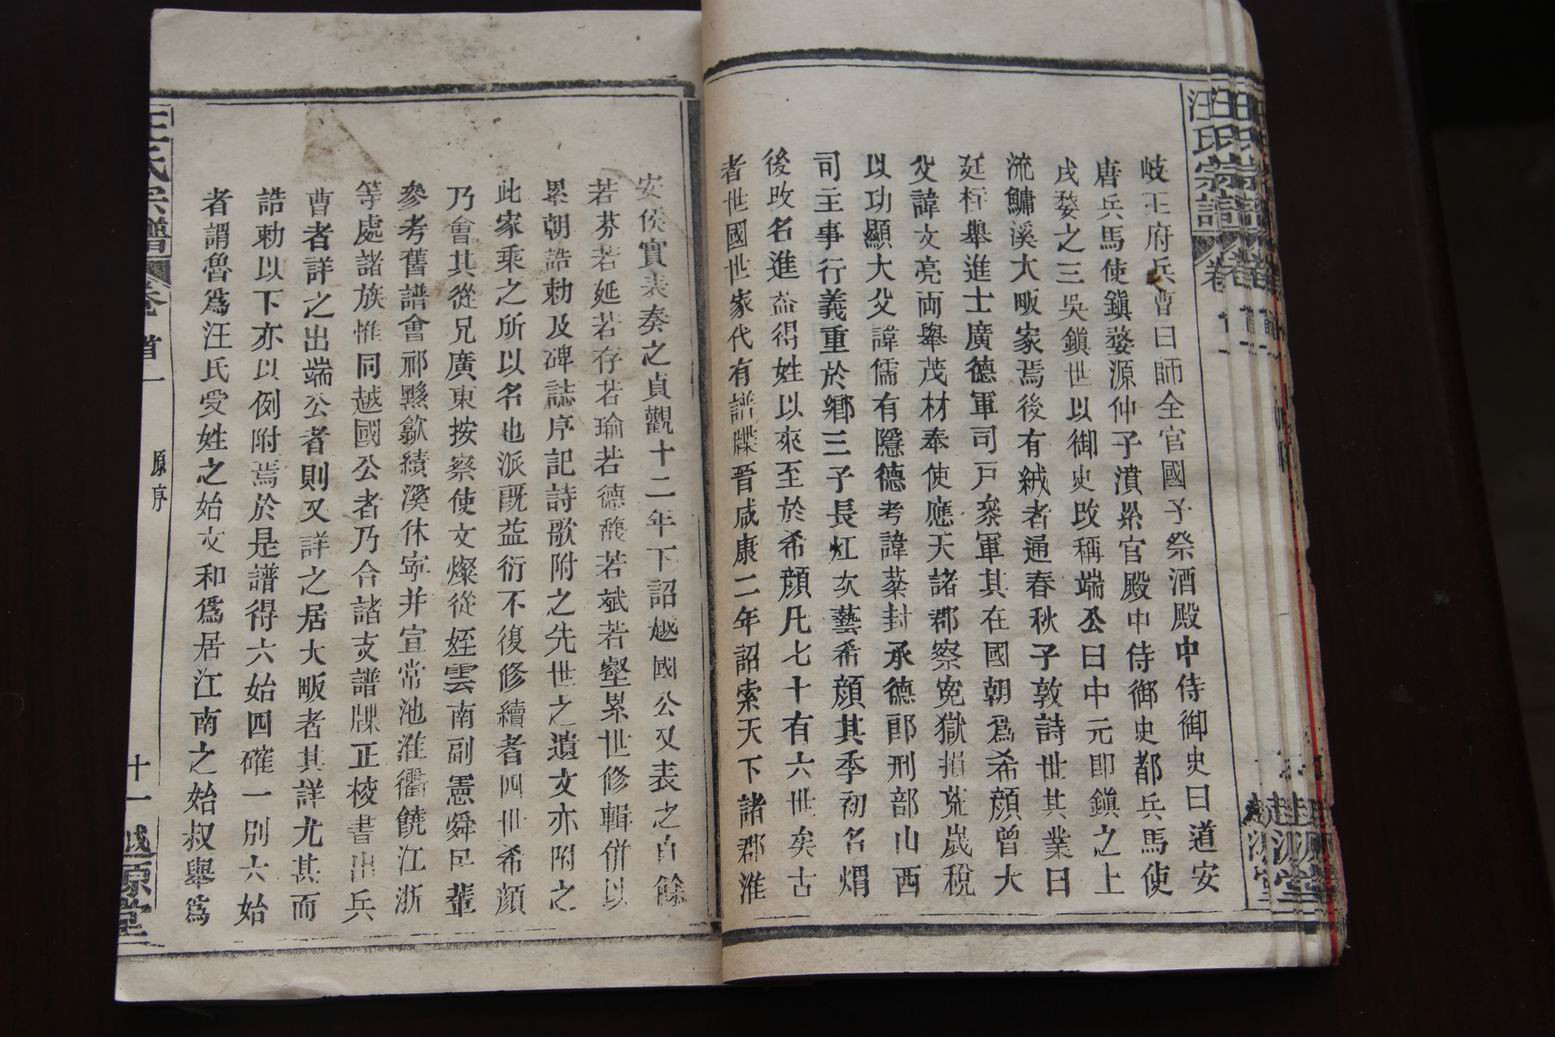 汪氏宗譜 卷
岐王府兵曹曰師全官國子祭酒殿中侍御史曰道安
唐兵馬使鎭婺源仲子濆累官殿中侍御史都兵馬使
戍婺之三吳鎭世以御史攺稱端公曰中元即鎭之上
流鱅溪大畈家焉後有絨者通春秋子敦詩世其業曰
廷桓舉進士廣德軍司戸叅軍其在國朝爲希顏曾大
父諱文亮两舉茂材奉使應天諸郡察寃獄損荒嵗稅
以功顯大父諱儒有隱德考諱蓁封承德郎刑部山西
司主事行義重於鄉三子長灴次藝希顏其季初名焆
後攺名進葢得姓以來至於希顏凡七十有六世矣古
者世國世家代有譜牒晉咸康二年詔索天下諸郡淮
安侯實表奏之貞觀十二年下詔越國公又表之自餘
若芬若延若存若瑜若德馥若斌若壑累世修輯併以
累朝誥勅及碑誌序記詩歌附之先世之遺文亦附之
此家乘之所以名也派旣益衍不復修續者四世希顏
乃會其從兄廣東按察使文燦從姪雲南副憲舜民輩
參考舊譜會祁黟歙績溪休寧并宣常池淮衢饒江浙
等處諸族惟同越國公者乃合諸支譜牒正棱書出兵
曹者詳之出端公者則又詳之居大畈者其詳尤甚而
誥勅以下亦以例附焉於是譜得六始四確一別六始
者謂魯爲汪氏受姓之始文和爲居江南之始叔舉爲
汪氏宗譜 卷首一 原序 十一 越源堂